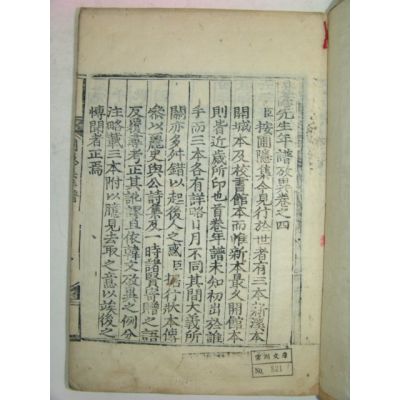 圃隱先生年譜攷異卷之四
臣按圃隱集今見行於世者有三本新溪本
開城本及校書館本而惟新本最久開館本
則皆近歲所印也首卷年譜未知初出於誰
手而三本各有詳略日月不同其間大義所
關亦多舛錯以起後人之惑臣據行狀本傳
參以麗史與公詩集及一時諸賢寄贈之語
反覆尋考正其訛謬且依韓文攷異之例分
注略載三本附以臆見去取之意以竢後之
博聞者正焉
文庫
No. 821